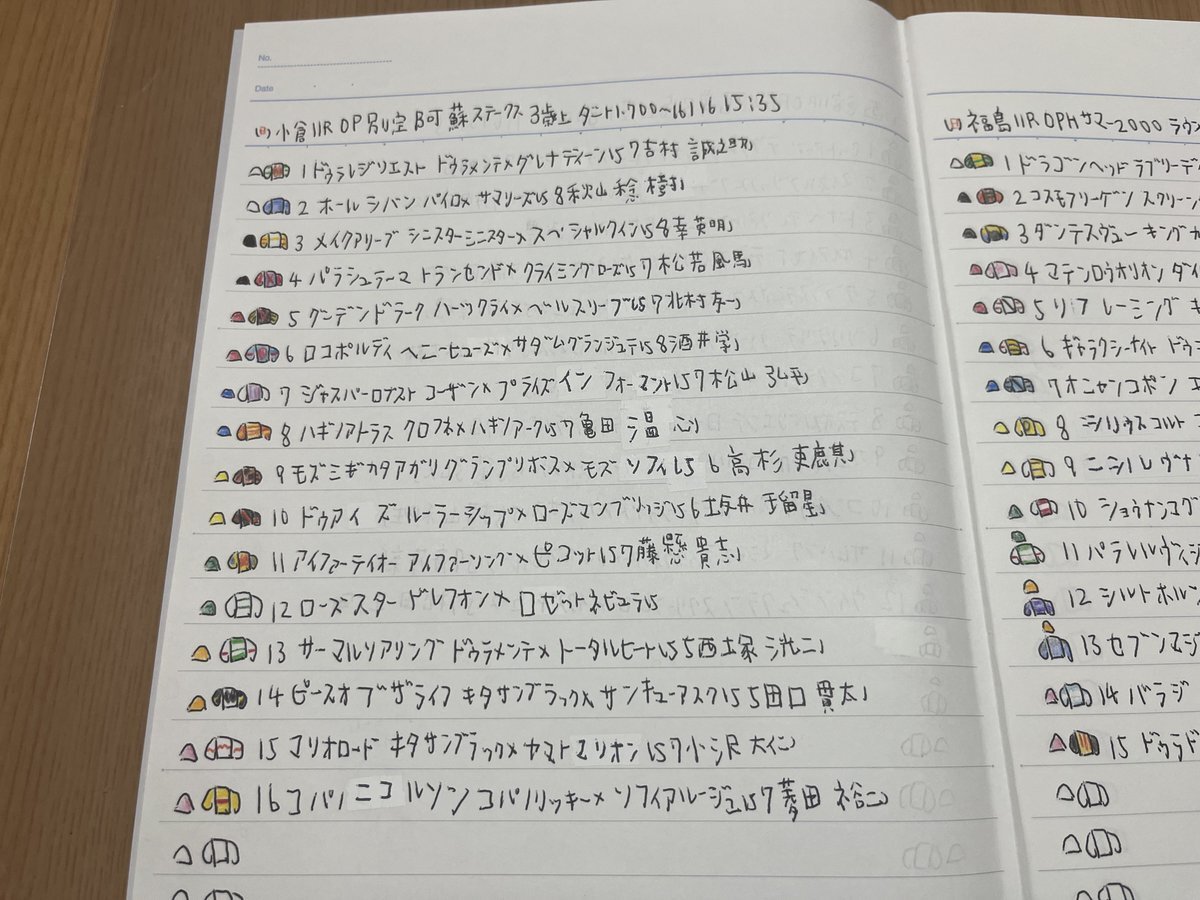 No.
Date
日 小倉11R OP 別定 阿蘇ステークス 3歳上 ダート1.700~16 16 15:35
1 ドゥラレジリエスト ドゥラメンテ×グレナディーン15 7吉村 誠之助
2 ホールシバン パイロ×サマリーズ15 8秋山 稔樹
3 メイクアリープ シニスターミニスター×スペシャルクイン15 8幸英明
4 パラシュラーマ トランセンド×クライミングローズ15 7松若風馬
5 グーデンドラーク ハーツクライ×ベールスリーブ15 7北村友一
6 ロコポルティ ヘニーヒューズ×サダムグランジュテ15 8酒井学
7 ジャスパーロブスト コーザン×プライズインフォーマント15 7松山 弘平
8 ハギノアトラス クロフネ×ハギノアーク15 7亀田 温心
9 モズミギカタアガリ グランプリボス×モズ ソフィ15 6 高杉 吏麒
10 ドゥアイズ ルーラーシップ×ローズマンブリッジ15 6坂井 瑠星
11 アイファーテイオー アイファーソング×ピコット15 7藤懸 貴志
12 ローズスター ドレフォン×ロゼットネビュラ15
13 サーマルソアリング ドゥラメンテ×トータルヒート15 5西塚 洸二
14 ピースオブザライフ キタサンブラック×サンキューアスク15 5田口 貫太
15 マリオロード キタサンブラック×ヤマトマリオン 15 7小沢 大仁
16 コパノニコルソン コパノリッキー×ソフィアルージュ15 7菱田 裕二
日 福島11R OPH サマー2000
1 ドラゴンヘッド
2 コスモフリーゲン スクリーン
3 ダンテスヴュー キングカ
4 マテンロウオリオン ダイ
5 リフレーミング キ
6 ギャラクシーナイト ドゥ
7 オニャンコポン エ
8 シリウスコルト
9 ニシノレヴナ
10 ショウナンマグ
11 パラレルヴィジ
12 シルトホルン
13 セブンマジ
14 バラジ
15 ドゥラド